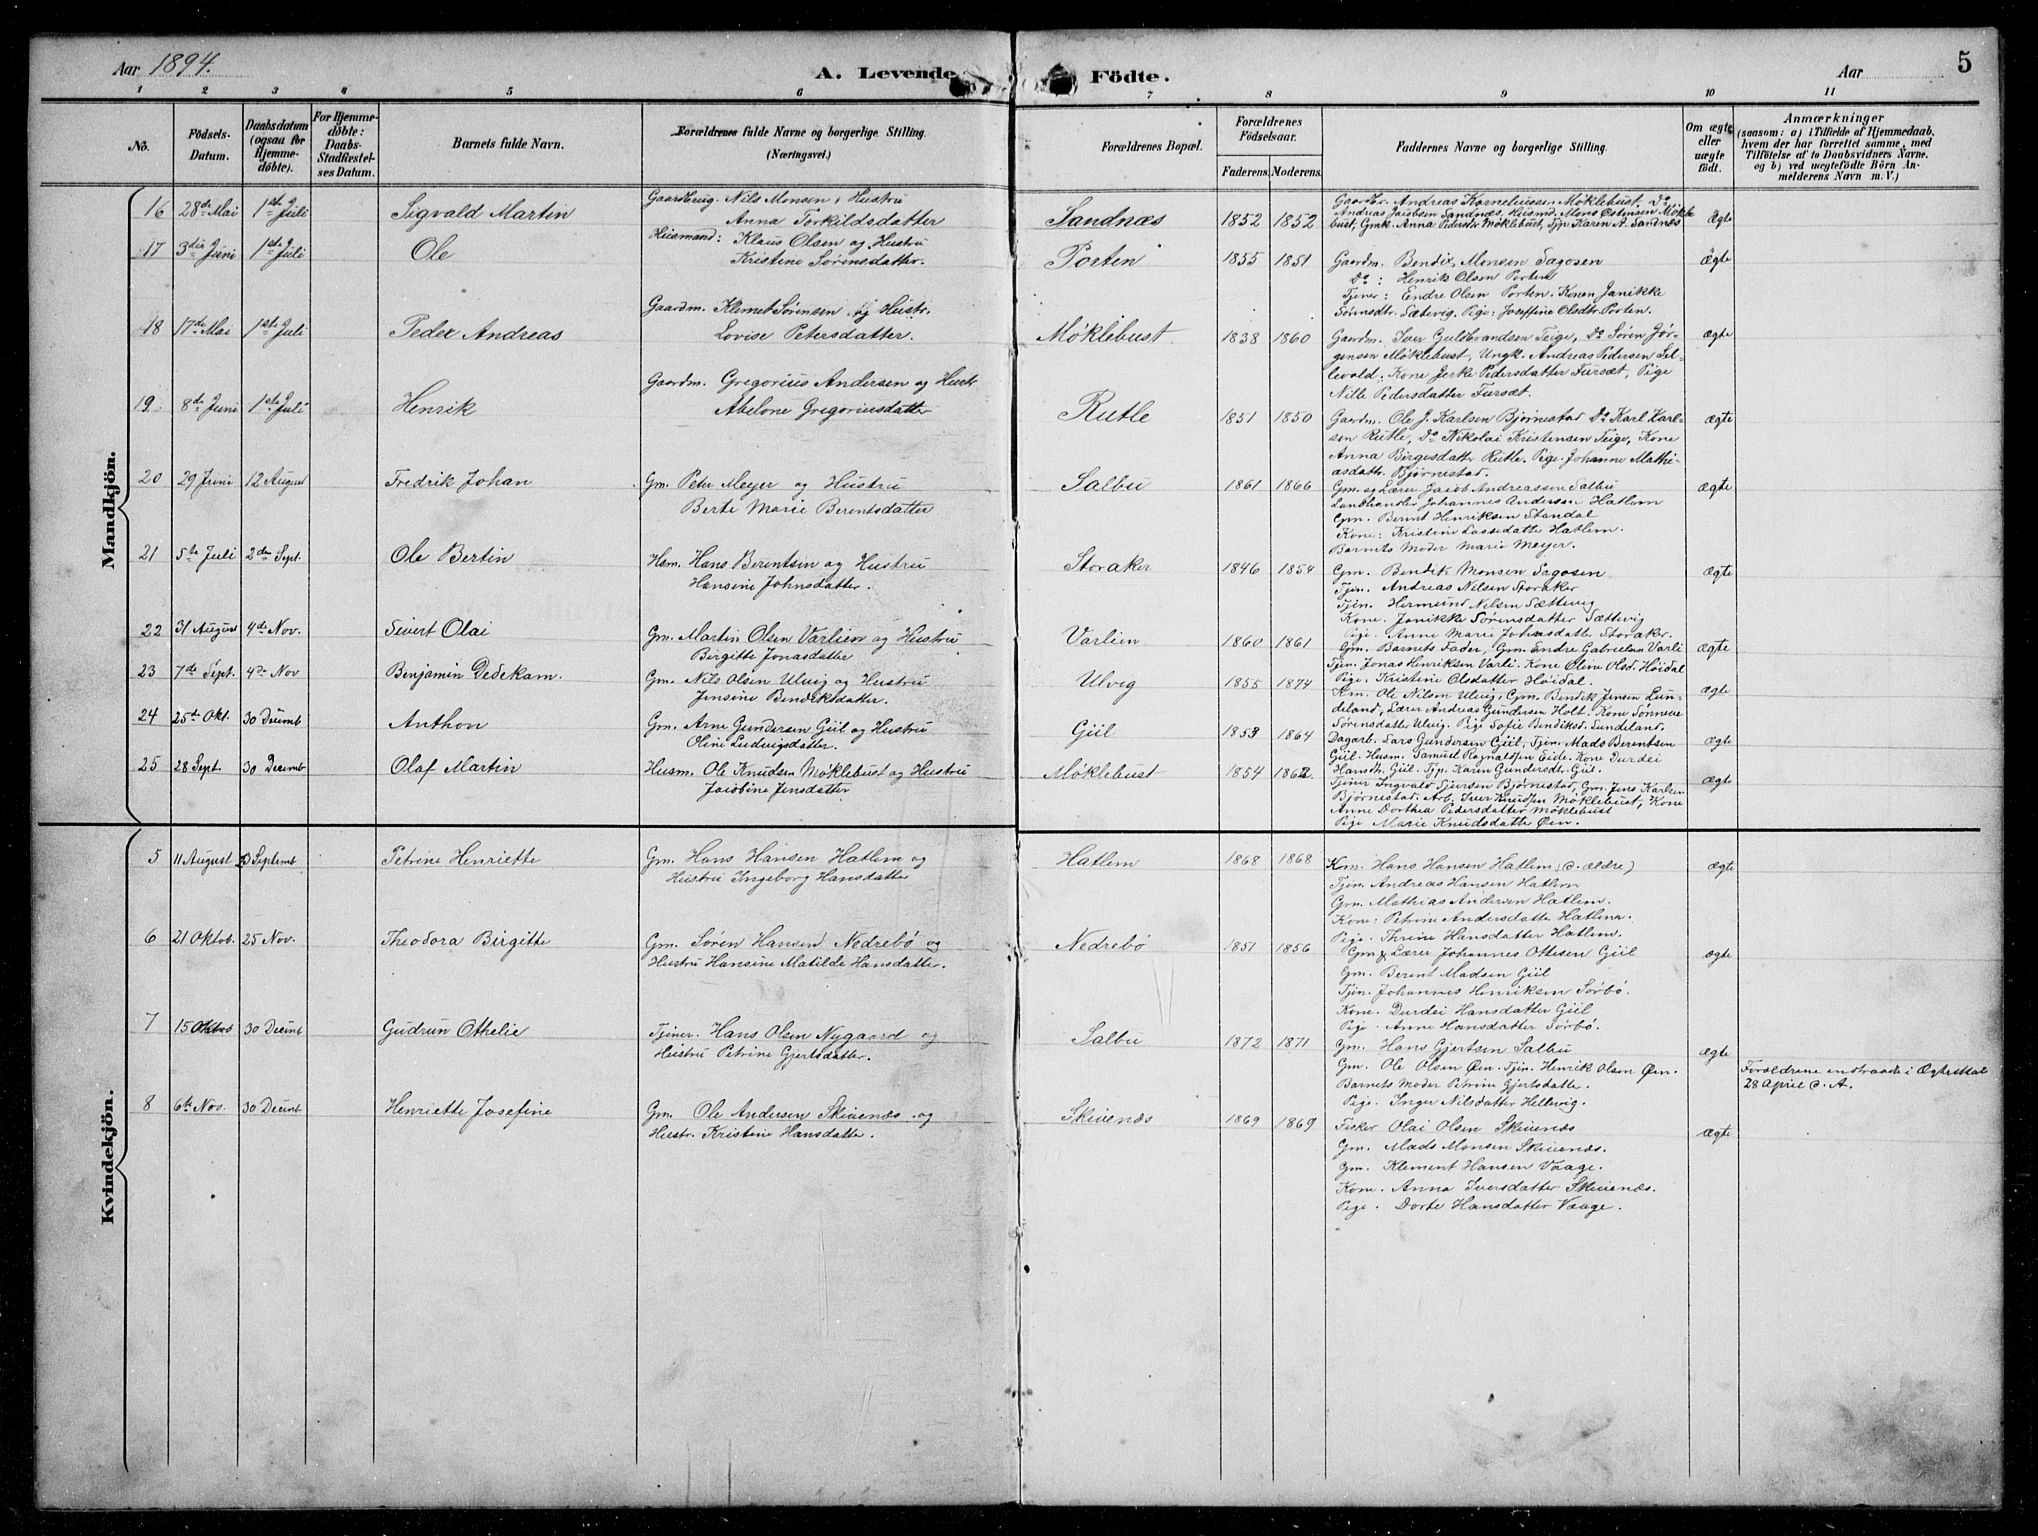 Aar 1894.
A. Levende
Födte.
Aar
5
1 2 3 4 5 6 7 8 9 10 11
No.
Födsels-
Datum.
Daabsdatum
(ogsaa for
Hjemme-
döbte).
For Hjemme-
döbte:
Daabs-
Stadfæstel-
ses Datum.
Barnets fulde Navn.
Forældrenes fulde Navne og borgerlige Stilling.
(Næringsvei.)
Forældrenes Bopæl.
Forældrenes
Födselsaar.
Faderens.
Moderens.
Faddernes Navne og borgerlige Stilling.
Om ægte
eller
uægte
födt.
Anmærkninger
(saasom: a) i Tilfælde af Hjemmedaab,
hvem der har forrettet samme, med
Tilföielse af to Daabsvidners Navne.
og b) ved uægtefödte Börn An-
melderens Navn m. V.)
Mandkjön.
16 28de Mai 1ste Juli Sigvald Martin
Gaardbrug. Nils Monsen & Hustru
Anna Torkildsdatter
Sandnæs 1852 1852
Gaardbr. Andreas Kornelius­sen Möklebust. Do
Andreas Jacobsen Sandnæs, Husmd. Mons Østensen Mökle
bust, Gmk. Anna Pedersdtr Möklebust, Tjp. Karen A. Sandnæs
Ægte
17 3die Juni 1ste Juli Ole
Husmand: Klaus Olsen og Hustru
Kristine Sørensdatter.
Porten 1855 1851
Gaardm. Bendix Monsen Sagosen
Do: Henrik Olsen Porten
Tjener: Endre Olsen Porten. Konen Janikke
Sörensdtr. Sætevig. Pige: Josefine Olsdtr Porten.
Ägte
18 17de Mai 1ste Juli Peder Andreas
Gaardm. Klemet Sørensen og Hustr.
Lovise Petersdatter.
Møklebust. 1838 1860
Gaardm. Iver Guldbrandsen Teige, Do Sören Jør-
gensen Møklebust, Ungk. Andreas Pedersen Sel-
levold. Kone Jerke Pedersdatter Fursæt, Pige
Nille Pedersdatter Fursæt.
ægte
19. 8de Juni 1ste Juli Henrik
Gaardm. Gregorius Andersen og Hustr
Abelone Gregoriusdatter
Rutle 1851 1850
Gaardm. Ole J. Karlsen Bjørnestad Do Karl Karl-
sen Rutle, Do Nikolai Kristensen Teige, Kone
Anna Birgesdatter Rutle. Pige Johanne Mathi-
asdattr. Bjørnestad.
ægte
20 29 Juni 12 August Fredrik Johan
Gm. Peter Meyer og Hustru
Berte Marie Berentsdatter
Salbu 1861 1866
Gm. og Lærer Jacob Andreassen Salbu
Landhandler Johannes Andersen Hatlem
Gm. Bernt Henriksen Standal
Kone: Kristine Lassedatte Hatlem.
Barnets Moder Marie Meyer.
ægte
21 5te Juli 2den Sept. Ole Bertin
Hsm. Hans Berentsen og Hustru
Hansine Johnsdatter.
Storaker 1846 1854
Gm. Bendik Monsen Sagosen
Tjen. Andreas Nilsen Storaker
Tjen. Hermund Nilsen Sættevig
Kone. Janikke Sørensdatter Sættevig
Pige. Anne Marie Johnsdatte Storaker.
ægte
22 31 August 4de Nov. Sivert Olai
Gm. Martin Olsen Varlien og Hustru
Birgitte Jonasdatter
Varlien 1860 1861
Gm. Barnets Fader, Gm. Endre Gabrielsen Varli
Tjen. Jonas Henriksen Varli. Kone Oline Olsd. Höidal
Pige. Kristine Olsdatter Höidal.
ægte
23 7de Sept. 4de Nov Benjamin Dedekam.
Gm. Nils Olsen Ulvig og Hustru
Jensine Bendiksdatter.
Ulvig 1855 1874
Hm. Ole Nilsen Ulvig, Gm. Bendik Jensen Lun-
deland, Lærer Andreas Gundersen Holt. Kone Sønneve
Sørensdatter Ulvig. Pige Sofie Bendiksd. Lundeland.
ægte
24 25de Okt. 30 Decemb Anthon
Gm. Arne Gundersen Giil og Hustru
Oline Ludvigsdatter.
Giil 1853 1864
Dagarb. Lars Gundersen Giil, Tjen. Mads Berentsen
Giil. Husm. Samuel Ragnaldsen Eide. Kone Durdei
Hansdtr. Giil. Tjp. Karen Gundersdtr. Giil.
ægte
25 28 Sept. 30 Decemb Olaf Martin
Husm. Ole Knudsen Møklebust og Hustru
Jacobine Jensdatter
Møklebust 1854 1862
Tjener Ingvald Sjursen Bjørnestad, Gm. Jens Karlsen
Bjørnestad. Arb. Iver Knudsen Møklebust, Kone
Anne Dorthea Pedersdatter Møklebust
Pige Marie Knudsdatte Øen.
ægte
Kvindekjön.
5 11 August 23 Septemb Petrine Henriette
Gm. Hans Hansen Hatlem og
Hustru Ingeborg Hansdatte
Hatlem 1868 1868
Km. Hans Hansen Hatlem (d. ældre)
Tjen. Andreas Hansen Hatlem
Gm. Mathias Andersen Hatlem.
Kone: Petrine Andersdatte Hatlem.
Pige. Thrine Hansdatter Hatlem.
ægte
6 21 Oktob. 25 Nov. Theodora Birgitte
Gm. Sören Hansen Nedrebö og
Hustru Hansine Matilde Hansdatter.
Nedrebö 1851 1856
Gm & Lærer Johannes Ottesen Giil
Gm. Berent Madsen Giil
Tjen. Johannes Henriksen Sørbö.
Kone. Durdei Hansdatter Giil
Pige. Anne Hansdatter Sørbö.
ægte
7 15 Oktob 30 Decmb Gudrun Othelie
Tjener. Hans Olsen Nygaard og
Hustru Petrine Gjertsdatter.
Salbu 1872 1871
Gm. Hans Gjertsen Salbu
Gm. Ole Olsen Øen. Tjen. Henrik Olsen Øen.
Barnets Moder Petrine Gjertsdatte.
Pige. Inger Nilsdatter Hellevig.
ægte
Forældrene indtraadte i Ægteskab
28 April d. A.
8 6te Nov. 30 Decmb Henriette Josefine
Gm. Ole Andersen Skivenæs. og
Hustr. Kristine Hansdatte.
Skivenæs 1869 1869
Fisker Olai Olsen Skivenæs
Gm. Mads Monsen Skivenæs.
Gm. Klement Hansen Vaage.
Kone. Anna Iversdatter Skivenæs.
Pige. Dorte Hansdatter Vaage.
ægte